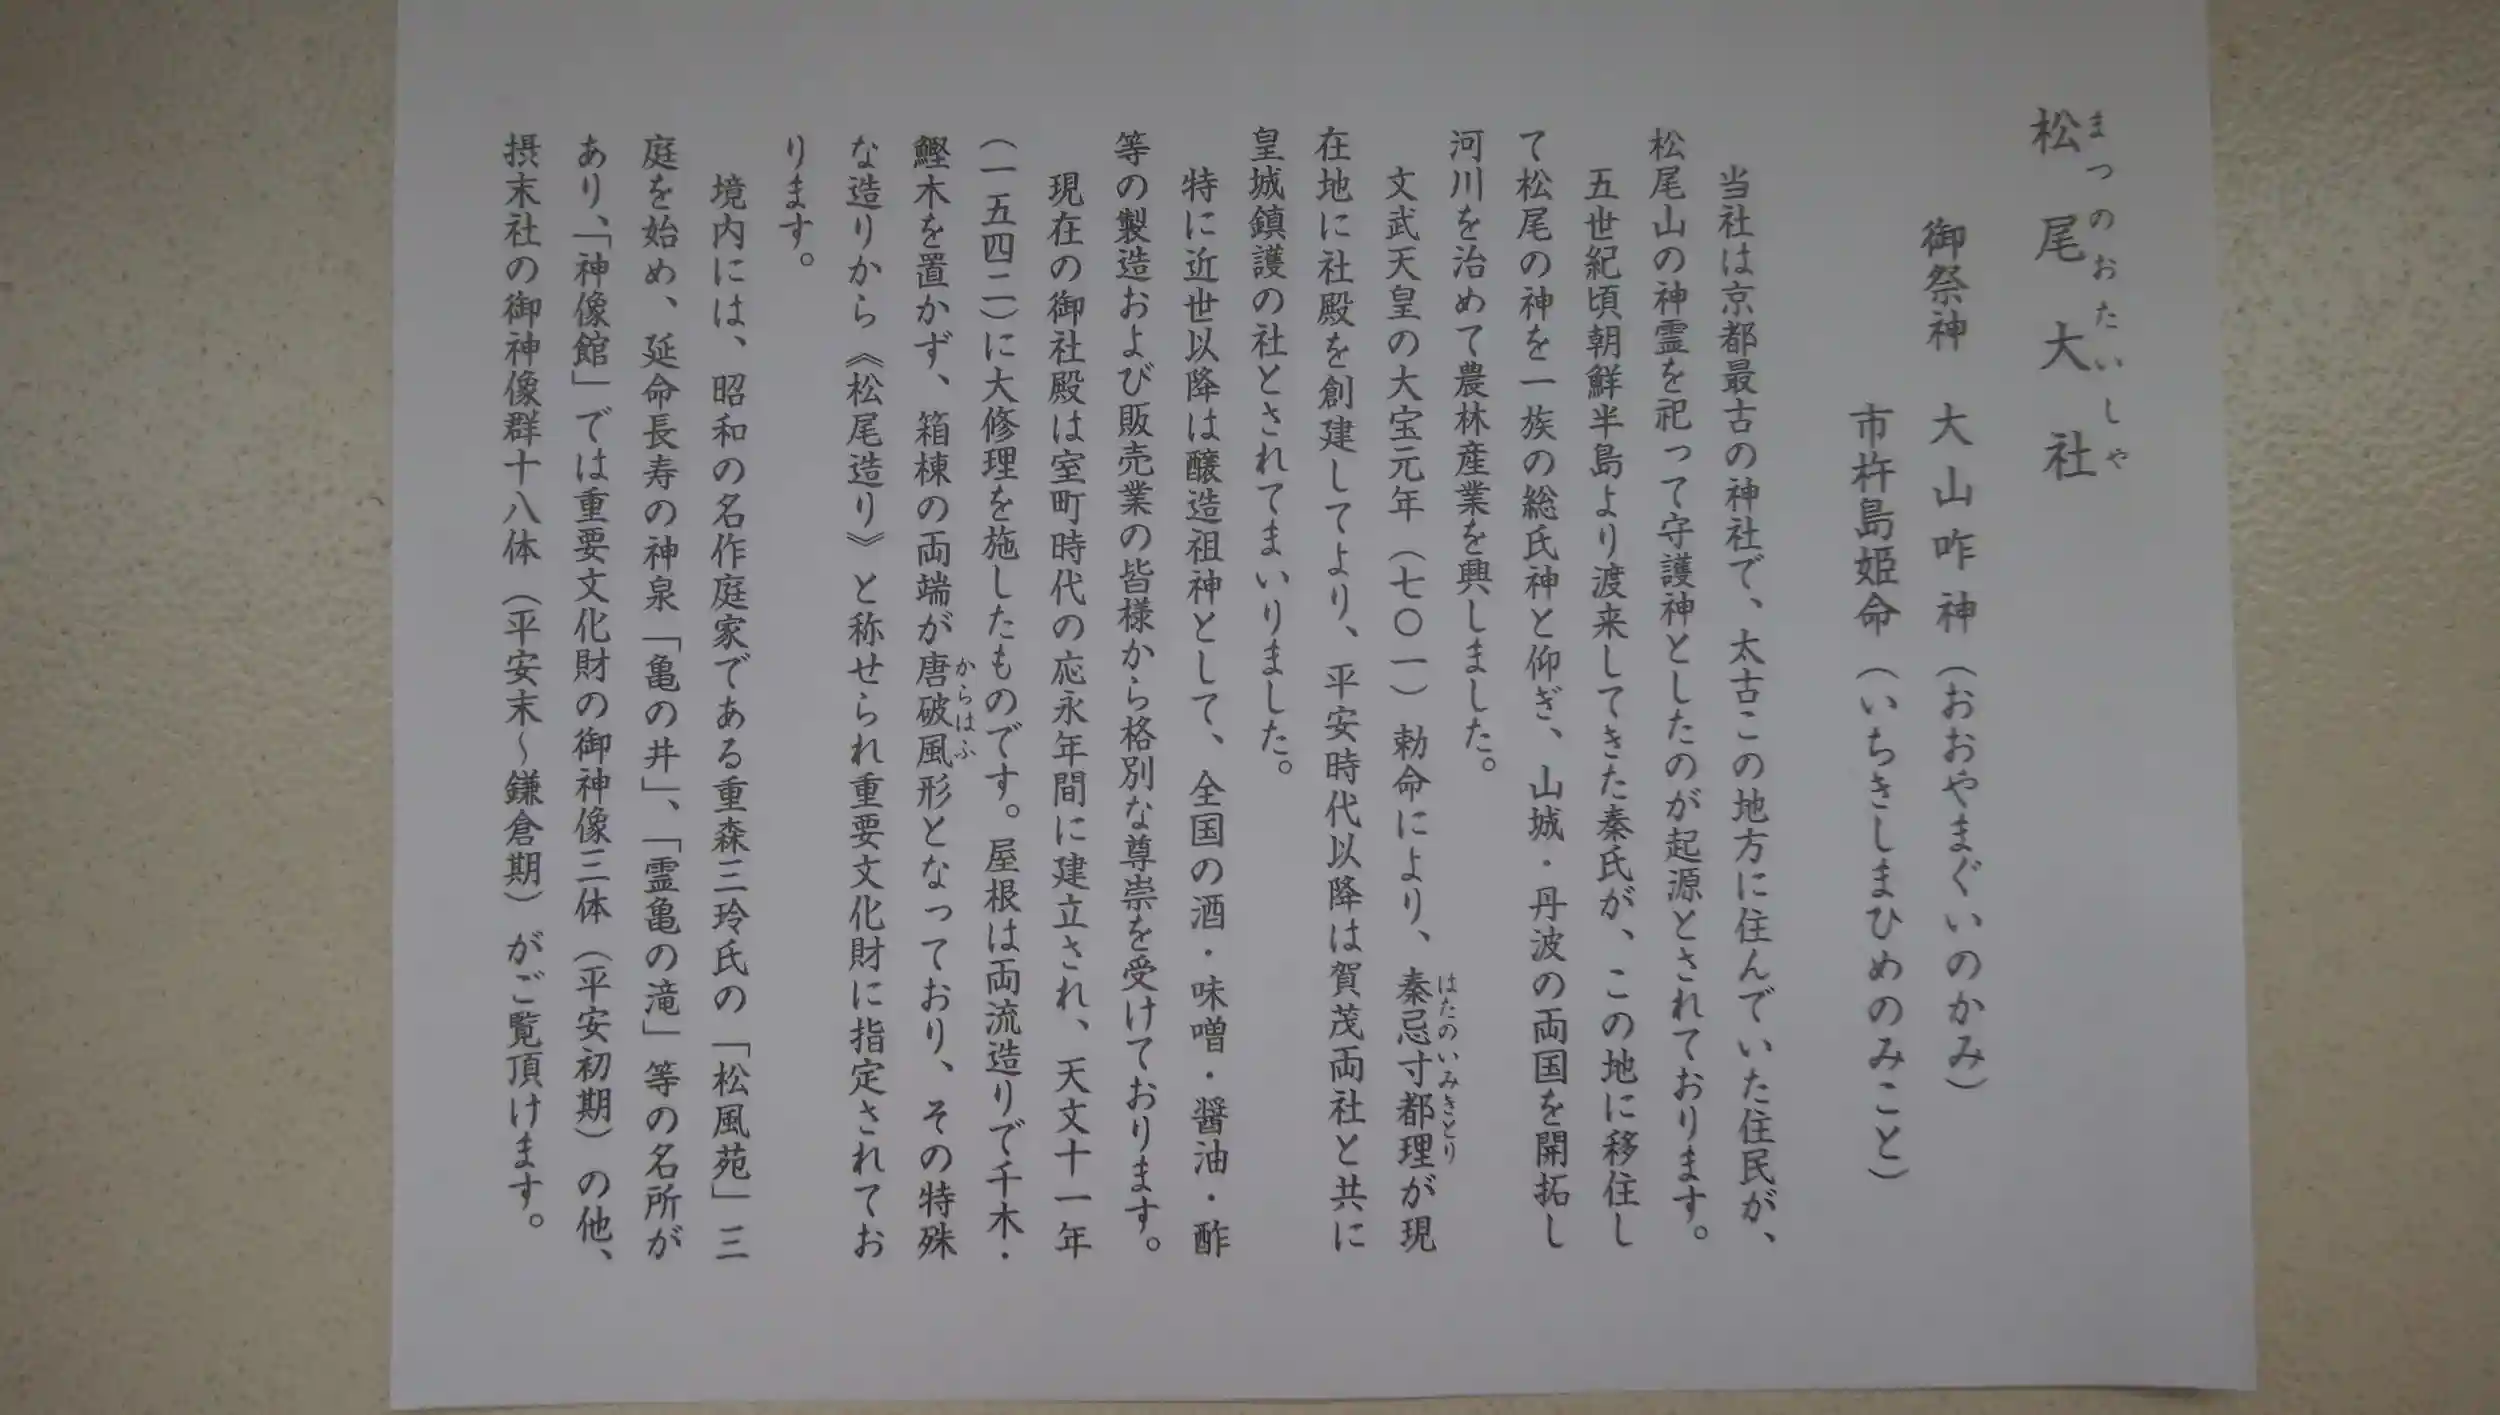 松尾大社
まつのおたいしや
御祭神　大山咋神（おおやまぐいのかみ）
市杵島姫命（いちきしまひめのみこと）
当社は京都最古の神社で、太古この地方に住んでいた住民が、
松尾山の神霊を祀って守護神としたのが起源とされております。
五世紀頃朝鮮半島より渡来してきた秦氏が、この地に移住し
て松尾の神を一族の総氏神と仰ぎ、山城・丹波の両国を開拓し
河川を治めて農林産業を興しました。
文武天皇の大宝元年（七〇一）勅命により、秦忌寸都理が現
はたのいみきとり
在地に社殿を創建してより、平安時代以降は賀茂両社と共に
皇城鎮護の社とされてまいりました。
特に近世以降は醸造祖神として、全国の酒・味噌・醤油・酢
等の製造および販売業の皆様から格別な尊崇を受けております。
現在の御社殿は室町時代の応永年間に建立され、天文十一年
（一五四二）に大修理を施したものです。屋根は両流造りで千木・
鰹木を置かず、箱棟の両端が唐破風形となっており、その特殊
からはふ
な造りから《松尾造り》と称せられ重要文化財に指定されてお
ります。
境内には、昭和の名作庭家である重森三玲氏の「松風苑」三
庭を始め、延命長寿の神泉「亀の井」、「霊亀の滝」等の名所が
あり、「神像館」では重要文化財の御神像三体（平安初期）の他、
摂末社の御神像群十八体（平安末～鎌倉期）がご覧頂けます。